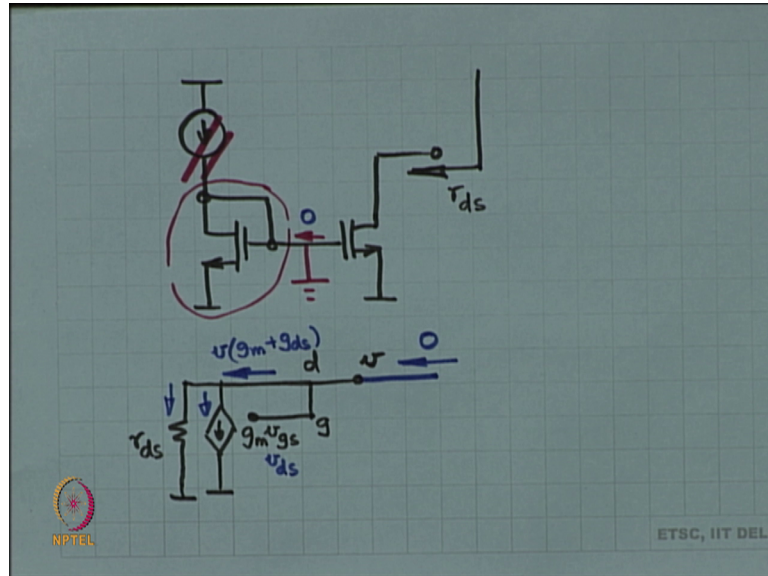 0
r_ds
v(g_m+g_ds)
0
d
v
r_ds
g_m v_gs
g
v_ds
NPTEL
ETSC, IIT DEL